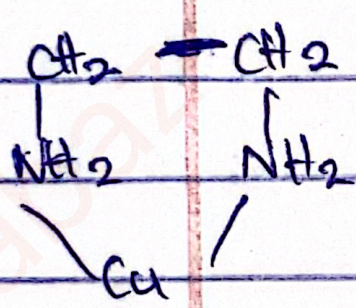 CH2 — CH2
NH2 NH2
Cu